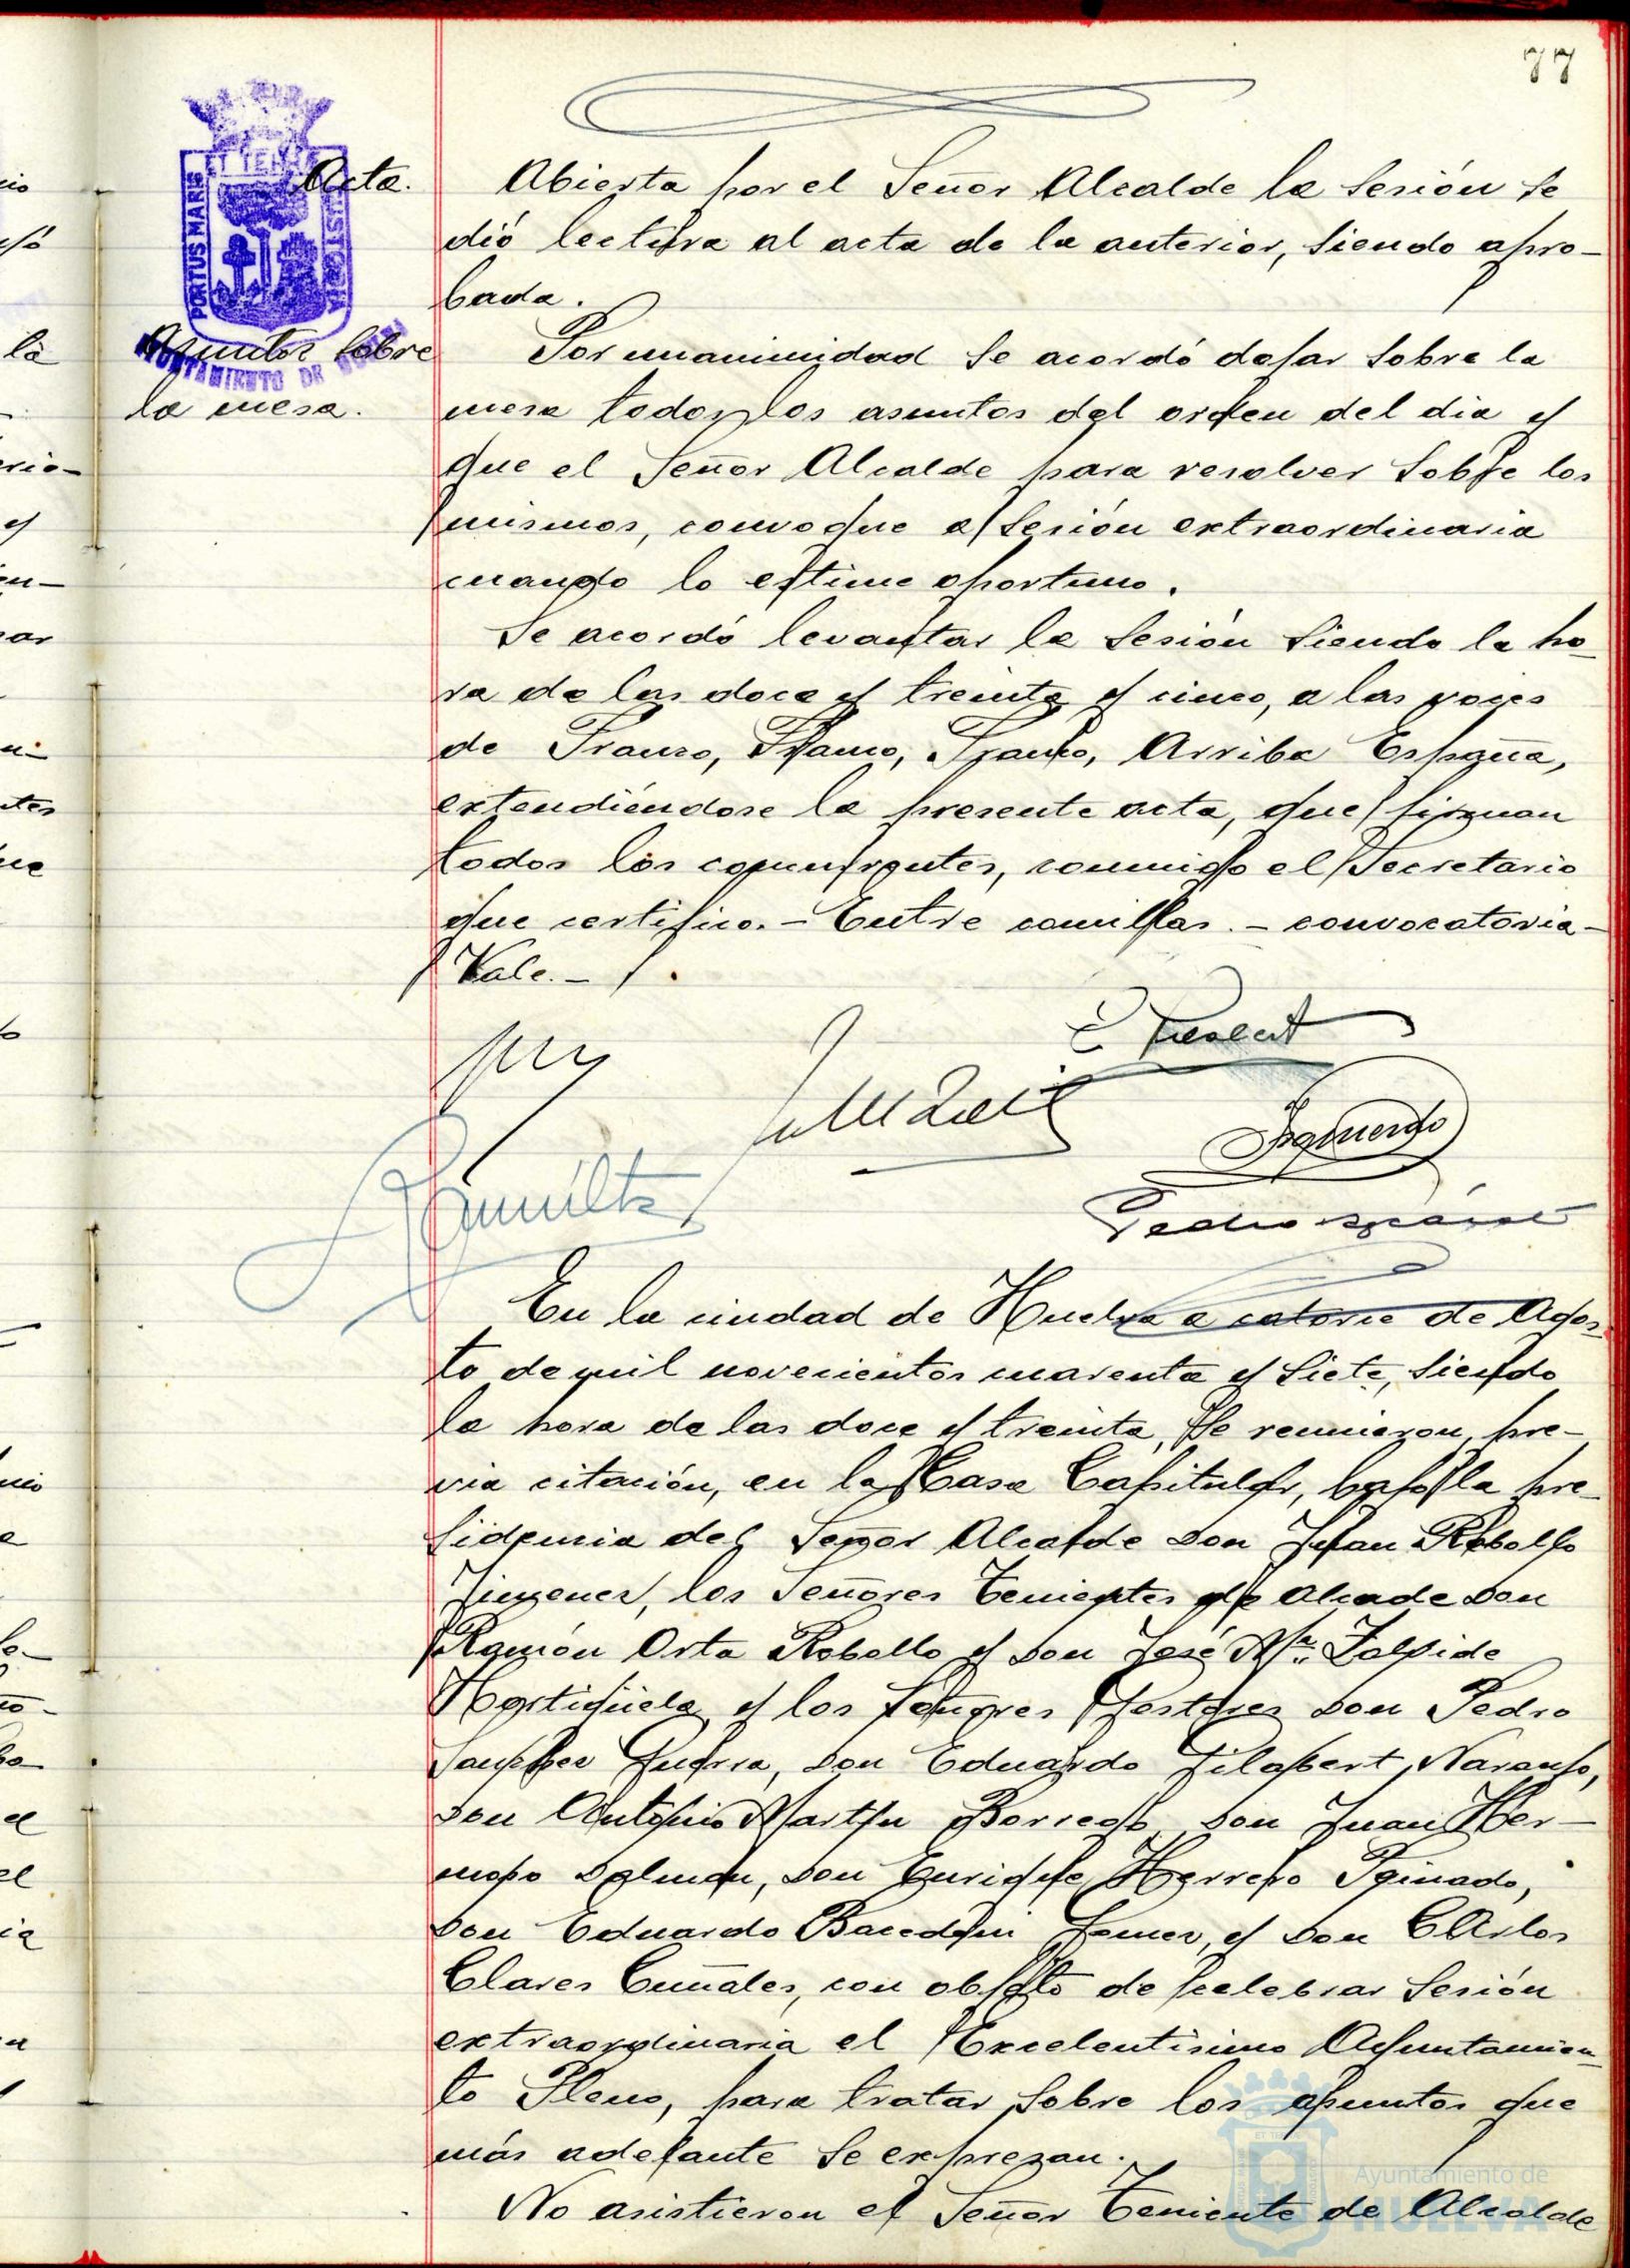 77
PORTUS MARIS
ET TERRAE
AYUNTAMIENTO DE HUELVA
Acta.
Abierta por el Señor Alcalde la Sesión se
dió lectura al acta de la anterior, siendo apro-
bada.
Asuntos sobre
la mesa.
Por unanimidad se acordó dejar sobre la
mesa todos los asuntos del orden del dia y
que el Señor Alcalde para resolver sobre los
mismos, convoque a sesión extraordinaria
cuando lo estime oportuno.
Se acordó levantar la sesión siendo la ho-
ra de las doce y treinta y cinco, a las voces
de Franco, Franco, Franco, Arriba España,
extendiéndose la presente acta, que firman
todos los concurrentes, conmigo el Secretario
que certifico. - Entre comillas. - convocatoria -
Vale. -
Izquierdo
Pedro
En la ciudad de Huelva a catorce de Agos-
to de mil novecientos cuarenta y siete, siendo
la hora de las doce y treinta, se reunieron, pre-
via citación, en la Casa Capitular, bajo la pre-
sidencia del Señor Alcalde Don Juan Rebollo
Jimenez, los Señores Tenientes de Alcade Don
Ramón Orta Rebollo y Don José Mª. Zalvide
Hortigüela y los Señores Gestores Don Pedro
Sanchez Guerra, Don Eduardo Gilabert Naranjo,
Don Antonio Martin Borrego, Don Juan Her-
moso Dalman, Don Enrique Herrero Peinado,
Don Eduardo Bacedoni Gomez, y Don Carlos
Clares Cumales, con objeto de celebrar Sesión
extraordinaria el Excelentisimo Ayuntamien-
to Pleno, para tratar sobre los asuntos que
más adelante se expresan.
No asistieron el Señor Teniente de Alcalde
Ayuntamiento de
HUELVA